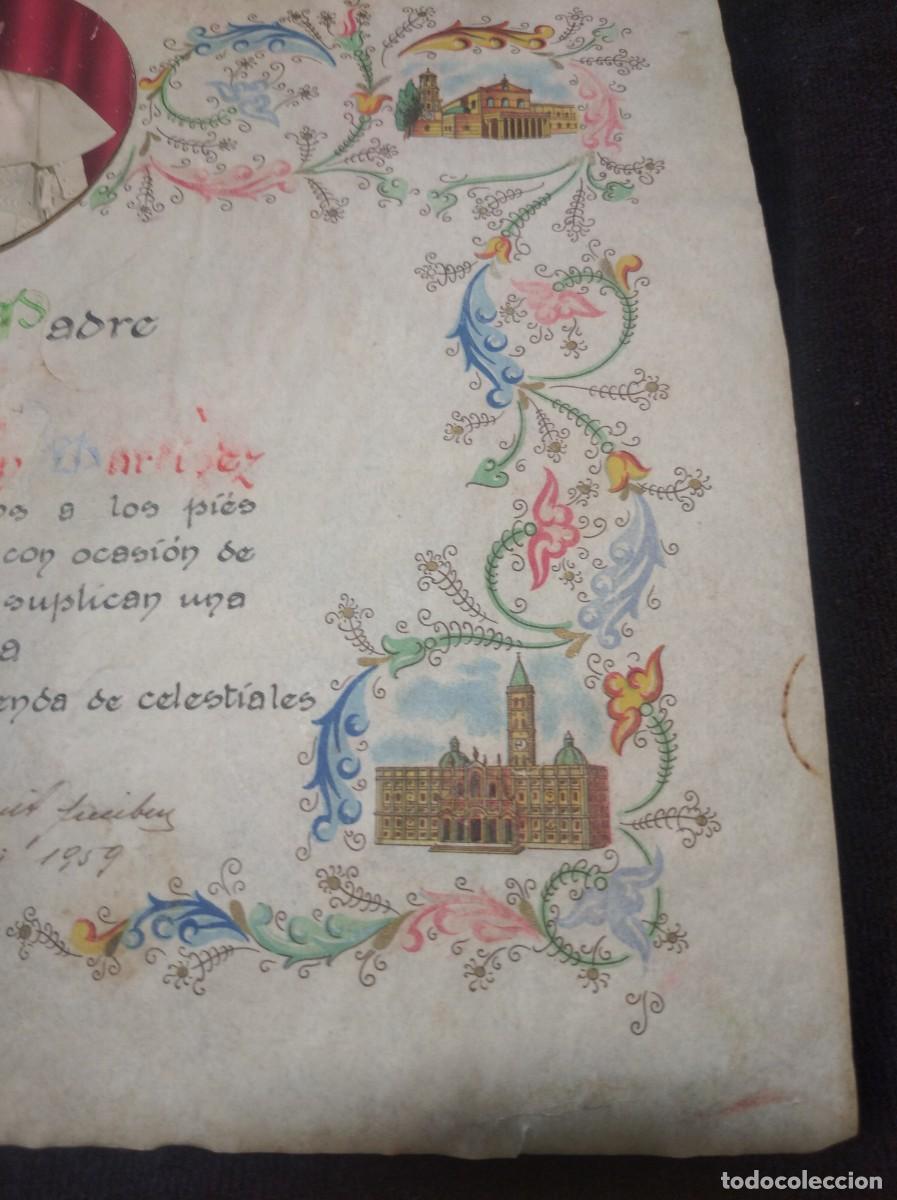 Padre
Martínez
os a los piés
con ocasión de
suplican una
a
enda de celestiales
1959
todocoleccion